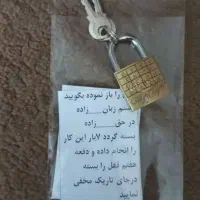 را باز نموده بگویید
زبان ____زاده
در حق____زاده
بسته گردد ۷بار این کار
را انجام داده و دفعه
هفتم قفل را بسته
درجای تاریک مخفی
نمایید